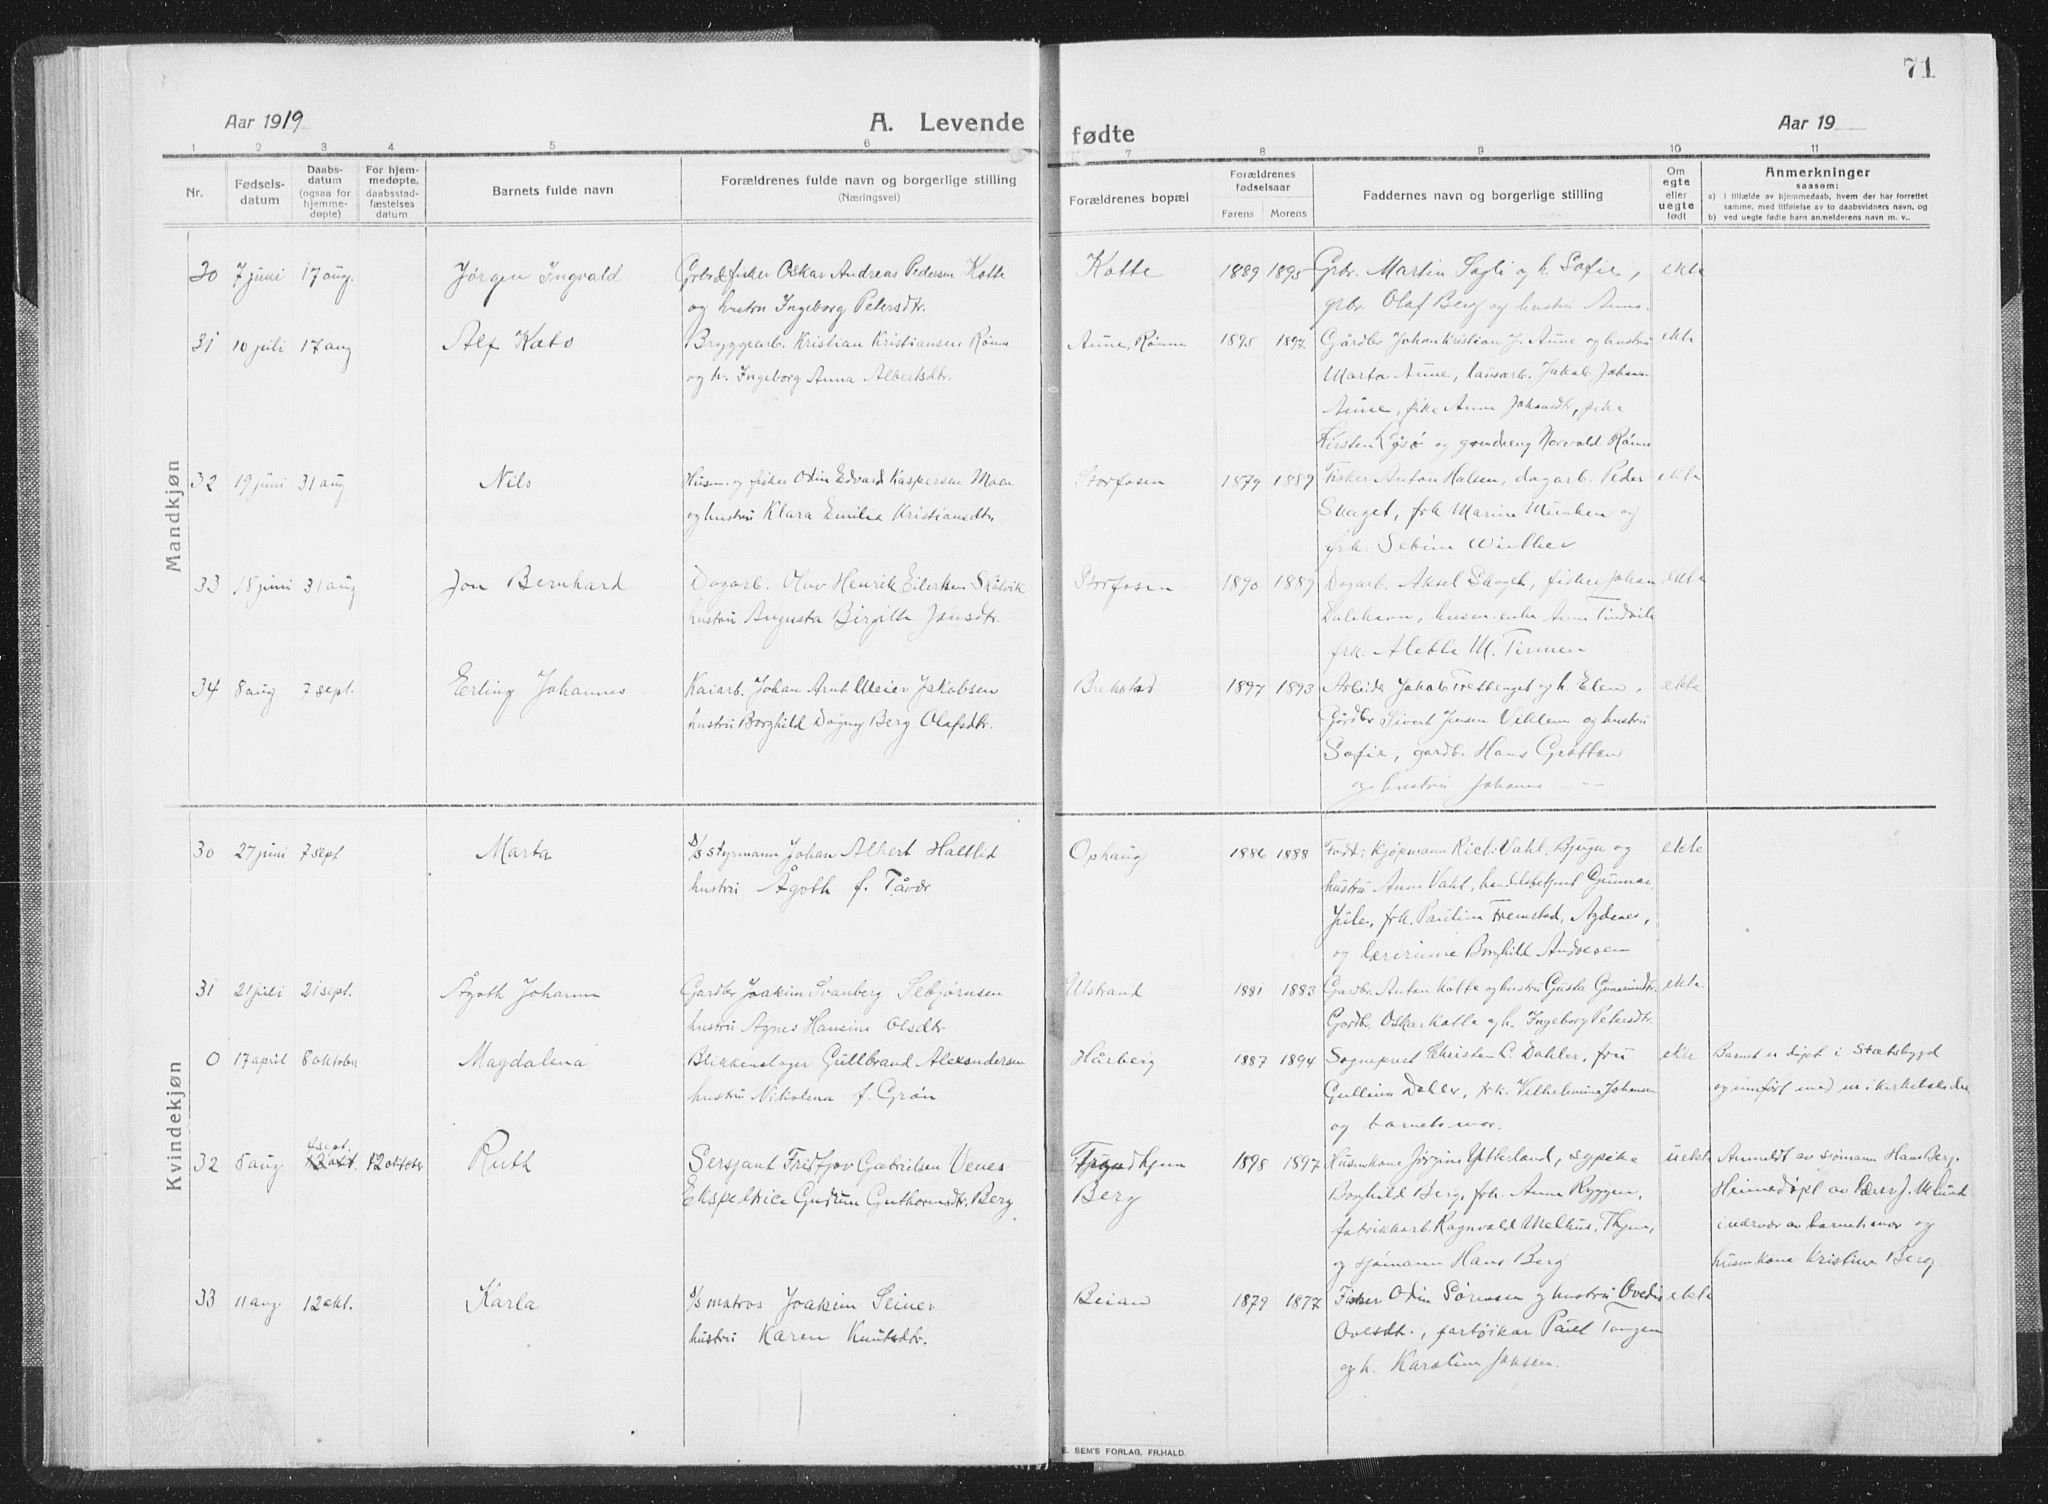 71
Aar 1919
A. Levende fødte
Aar 19
1 2 3 4 5 6 7 8 9 10 11
Nr.
Fødsels-
datum
Daabs-
datum
(ogsaa for
hjemme-
døpte)
For hjem-
medøpte,
daabsstad-
fæstelses
datum
Barnets fulde navn
Forældrenes fulde navn og borgerlige stilling
(Næringsvei)
Forældrenes bopæl
Forældrenes
fødselsaar
Farens Morens
Faddernes navn og borgerlige stilling
Om
egte
eller
uegte
født
Anmerkninger
saasom:
a) i tilfælde av hjemmedaab, hvem der har forrettet
samme, med tilføielse av to daabsvidners navn, og
b) ved uegte fødte barn anmelderens navn m. v..
Mandkjøn
30 7 juni 17 aug. Jørgen Ingvald
Oskar Andreas Pedersen Kotte
og hustru Ingeborg Petersdtr.
Kotte 1889 1895
Grbr. Martin Sagli og h. Sofie,
grbr. Olaf Berg og hustru Anna.
ekte
31 10 juli 17 aug Alf Kato
Bryggearb. Kristian Kristiansen Rønne
og h. Ingeborg Anna Albertsdtr.
Aune, Rønne 1895 1897
Gårdbr Johan Kristian J. Aune og hustru
Marta Aune, lausarb. Jakob Johansen
Aune, pike Anna Johansdtr, pike
Kirsten og Norvald Rønne
ekte
32 19 juni 31 aug Nils
Husm. og fisker Odin Edvard Kaspersen Moen
og hustru Klara Emilie Kristiansdtr.
Storfosen 1879 1889
Fisker Anton Halsen, dagarb. Peder
Skaget, frk Marine Munken og
frk. Sebine Winther
ekte
33 18 juni 31 aug Jon Bernhard
Dagarb. Olav Henrik Eilertsen Skålvik
hustru Augusta Birgitte Jensdtr.
Storfosen 1890 1889
Dagarb. Aksel Skaget, fisker Johan
Dalehavn, Anna
frk. Alette M. Tinnen
ekte
34 8 aug 7 sept. Erling Johannes
Kaiarb. Johan Arnt Meier Jakobsen
hustru Borghild Dagny Berg Olafsdtr.
Brekstad 1897 1893
Arbeider Jakob og h. Elen,
Gårdbr Sivert Jensen Viklem og hustru
Sofie, gardb. Hans Grøtten
og hustru Johanna
ekte
Kvindekjøn
30 27 juni 7 sept Marta
d/s styrmann Johan Albert Haltlid
hustru Ågoth f. Tåvær
Ophaug 1886 1888
Fadt: kjøpmann Rich. Vahl, Bjugn og
hustru Anna Vahl, handelsbetjent Gunnar
Juler, frk. Pauline Fremstad, Agdenes,
og lærerinne Borghild Andresen
ekte
31 21 juli 21 sept. Ågoth Johanne
Gardbr Joakim Svanberg Sebjørnsen
hustru Agnes Hansine Olsdtr
Ulstrand 1881 1883
Gardbr. Anton Kotte og hustru Gusta
Gardbr. Oskar Kotte og h. Ingeborg Petersdtr.
ekte
0 17 april 8 oktober Magdalena
Blikkenslager Gullbrand Alexandersen
hustru Nikolena f. Grøn
Hårberg 1887 1894
Sogneprest Christen C. Dahler, fru
Dahler, frk. Vilhelmine Johansen
og barnets mor.
ekte
Barnet er døpt i Stadsbygd
og innført med nr. i kirkeboka der
32 5 aug 4 sept. 12 oktober Ruth
Sersjant Fridtjov Gabrielsen Venes
Ekspeditrice Gudrun Guthormsdtr. Berg
Trondhjem
Berg
1898 1897
Husmkone Jørgine Ytterland, sypike
Borghild Berg, frk. Anna Ryggen,
fabrikkarb. Ragnvald Melhus, Thjem,
og sjømann Hans Berg
uekte
Anmeldt av sjømann Hans Berg.
Heimedøpt av lærer J. Melund
i nærvær av barnets mor og
husmkone Kristine Berg.
33 11 aug 12 okt. Karla
d/s matros Joakim Seiner
hustru Karen Knutsdtr.
Beian 1879 1877
Fisker Odin Sørensen og hustru Ovedie
Ovesdtr., Paul Tangen
og h. Karoline Jakssen.
ekte
E. SEM'S FORLAG, FR.HALD.